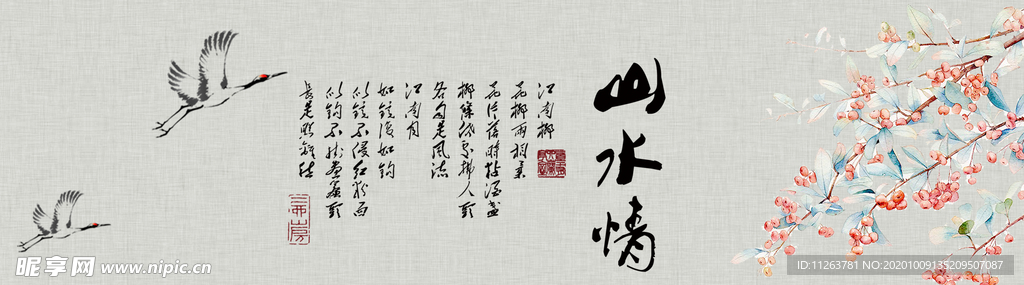 山水情
江南柳
花柳兩相柔
花片落時黏酒盞
柳條低處拂人頭
各自是風流
江南月
如鏡復如鈎
似鏡不侵紅粉面
似鈎不挂畫簾頭
長是照離愁
昵享网 www.nipic.cn
ID:11263781 NO:20201009135209507087